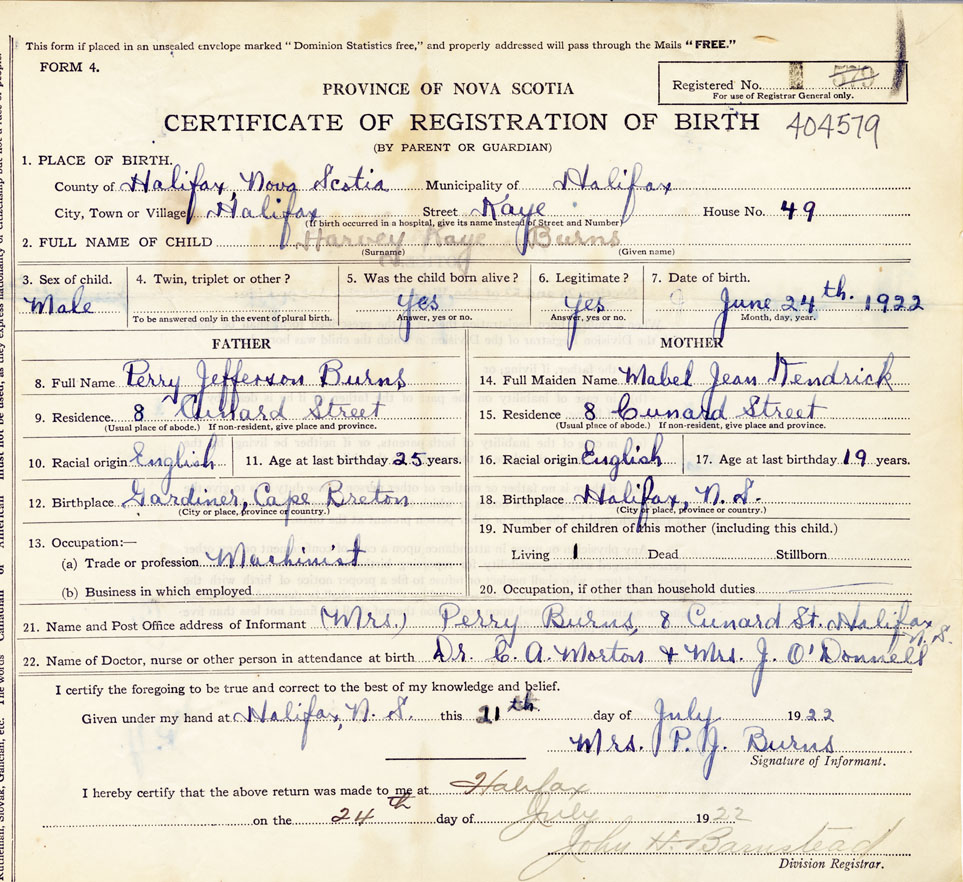 This form if placed in an unsealed envelope marked "Dominion Statistics free," and properly addressed will pass through the Mails "FREE."
FORM 4.
Registered No. 579
For use of Registrar General only.
PROVINCE OF NOVA SCOTIA
CERTIFICATE OF REGISTRATION OF BIRTH 404579
(BY PARENT OR GUARDIAN)
1. PLACE OF BIRTH.
County of Halifax, Nova Scotia Municipality of Halifax
City, Town or Village Halifax Street Kaye House No. 49
(If birth occurred in a hospital, give its name instead of Street and Number)
2. FULL NAME OF CHILD Harvey Kaye Burns
(Surname) (Given name)
3. Sex of child. 4. Twin, triplet or other? 5. Was the child born alive? 6. Legitimate? 7. Date of birth.
Male Yes Yes June 24th. 1922
To be answered only in the event of plural birth. Answer, yes or no. Answer, yes or no. Month, day, year.
FATHER MOTHER
8. Full Name Perry Jefferson Burns 14. Full Maiden Name Mabel Jean Kendrick
9. Residence. 8 Cunard Street 15. Residence 8 Cunard Street
(Usual place of abode.) If non-resident, give place and province. (Usual place of abode.) If non-resident, give place and province.
10. Racial origin English 11. Age at last birthday 25 years. 16. Racial origin English 17. Age at last birthday 19 years.
12. Birthplace Gardiner, Cape Breton 18. Birthplace Halifax, N. S.
(City or place, province or country.) (City or place, province or country.)
13. Occupation:— 19. Number of children of this mother (including this child.)
(a) Trade or profession Machinist Living 1 Dead Stillborn
(b) Business in which employed 20. Occupation, if other than household duties
21. Name and Post Office address of Informant (Mrs.) Perry Burns, 8 Cunard St. Halifax, N. S.
22. Name of Doctor, nurse or other person in attendance at birth Dr. C. A. Morton & Mrs. J. O'Donnell
I certify the foregoing to be true and correct to the best of my knowledge and belief.
Given under my hand at Halifax, N. S. this 21th day of July 1922
Mrs. P. J. Burns
Signature of Informant.
I hereby certify that the above return was made to me at Halifax
on the 24th day of July 1922
John H. Barnstead
Division Registrar.